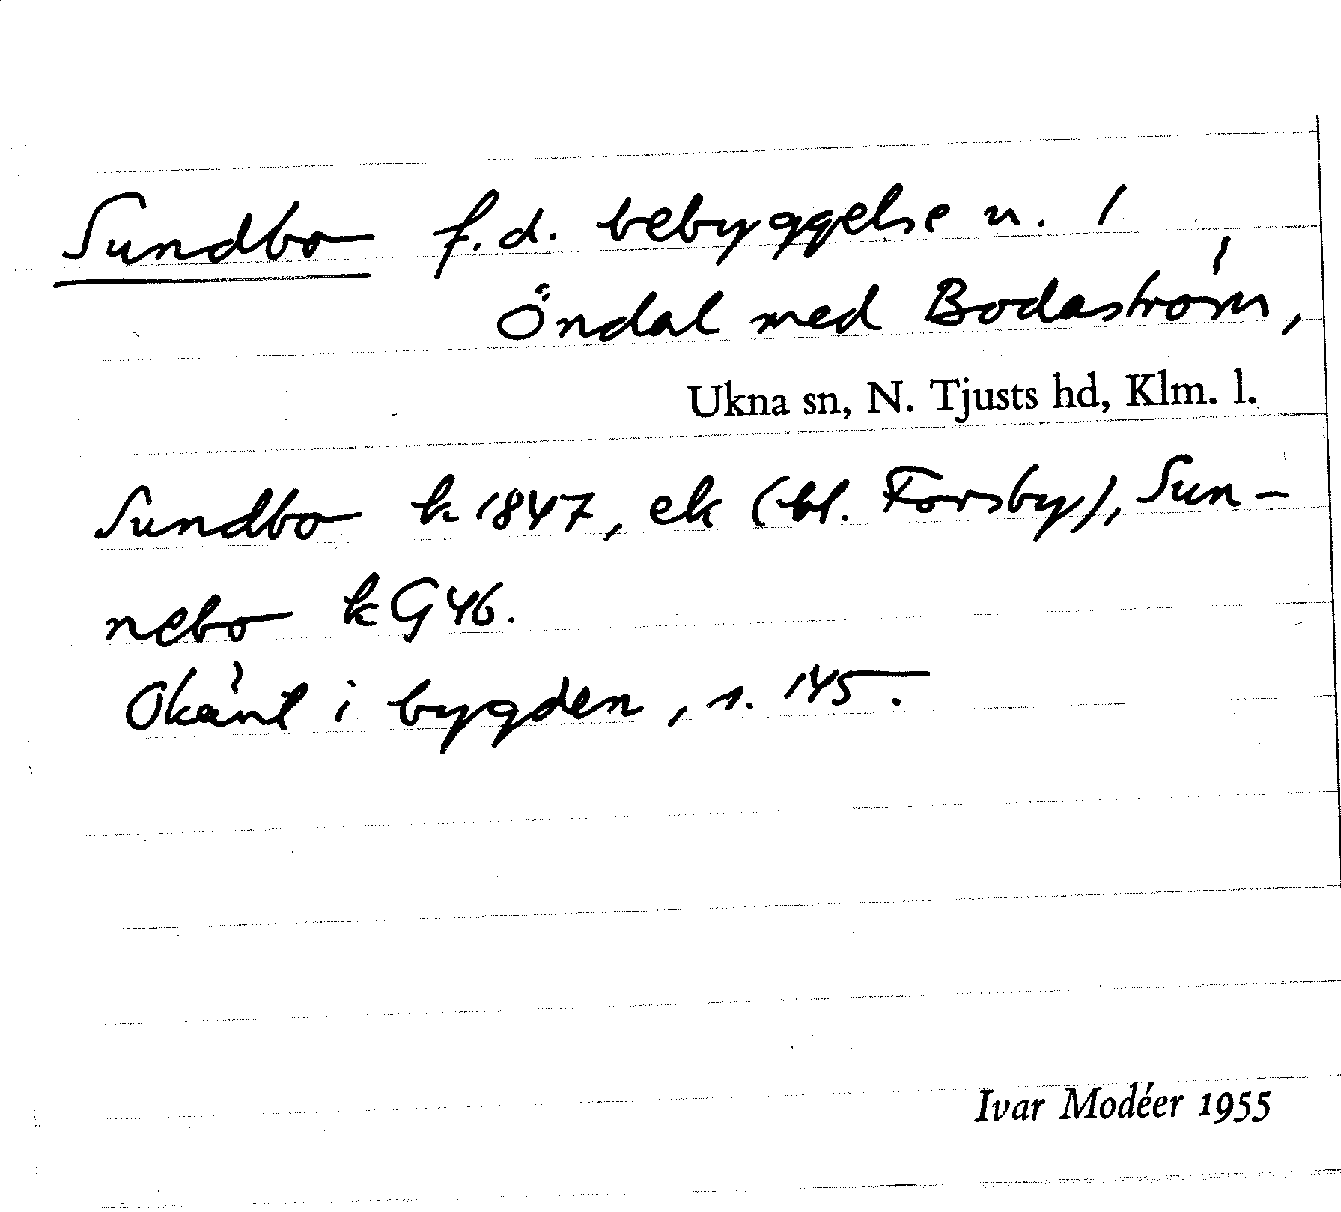 Sundbo f.d. bebyggelse u. 1
Öndal med Bodaström,
Ukna sn, N. Tjusts hd, Klm. l.
Sundbo k 1847, ek (bl. Forsby), Sun-
nebo k G46.
Okänt i bygden, s. 145.
Ivar Modéer 1955